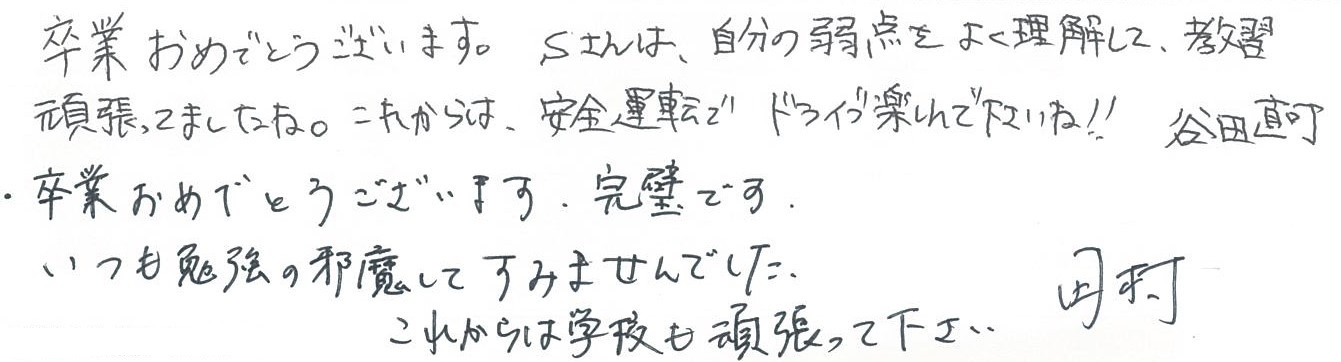 卒業おめでとうございます。 Sさんは、自分の弱点をよく理解して、教習
頑張ってましたね。これからは、安全運転で ドライブ楽しんで下さいね!! 谷田直可
・卒業おめでとうございます. 完璧です.
いつも勉強の邪魔してすみませんでした. 田村
これからは学校も頑張って下さい